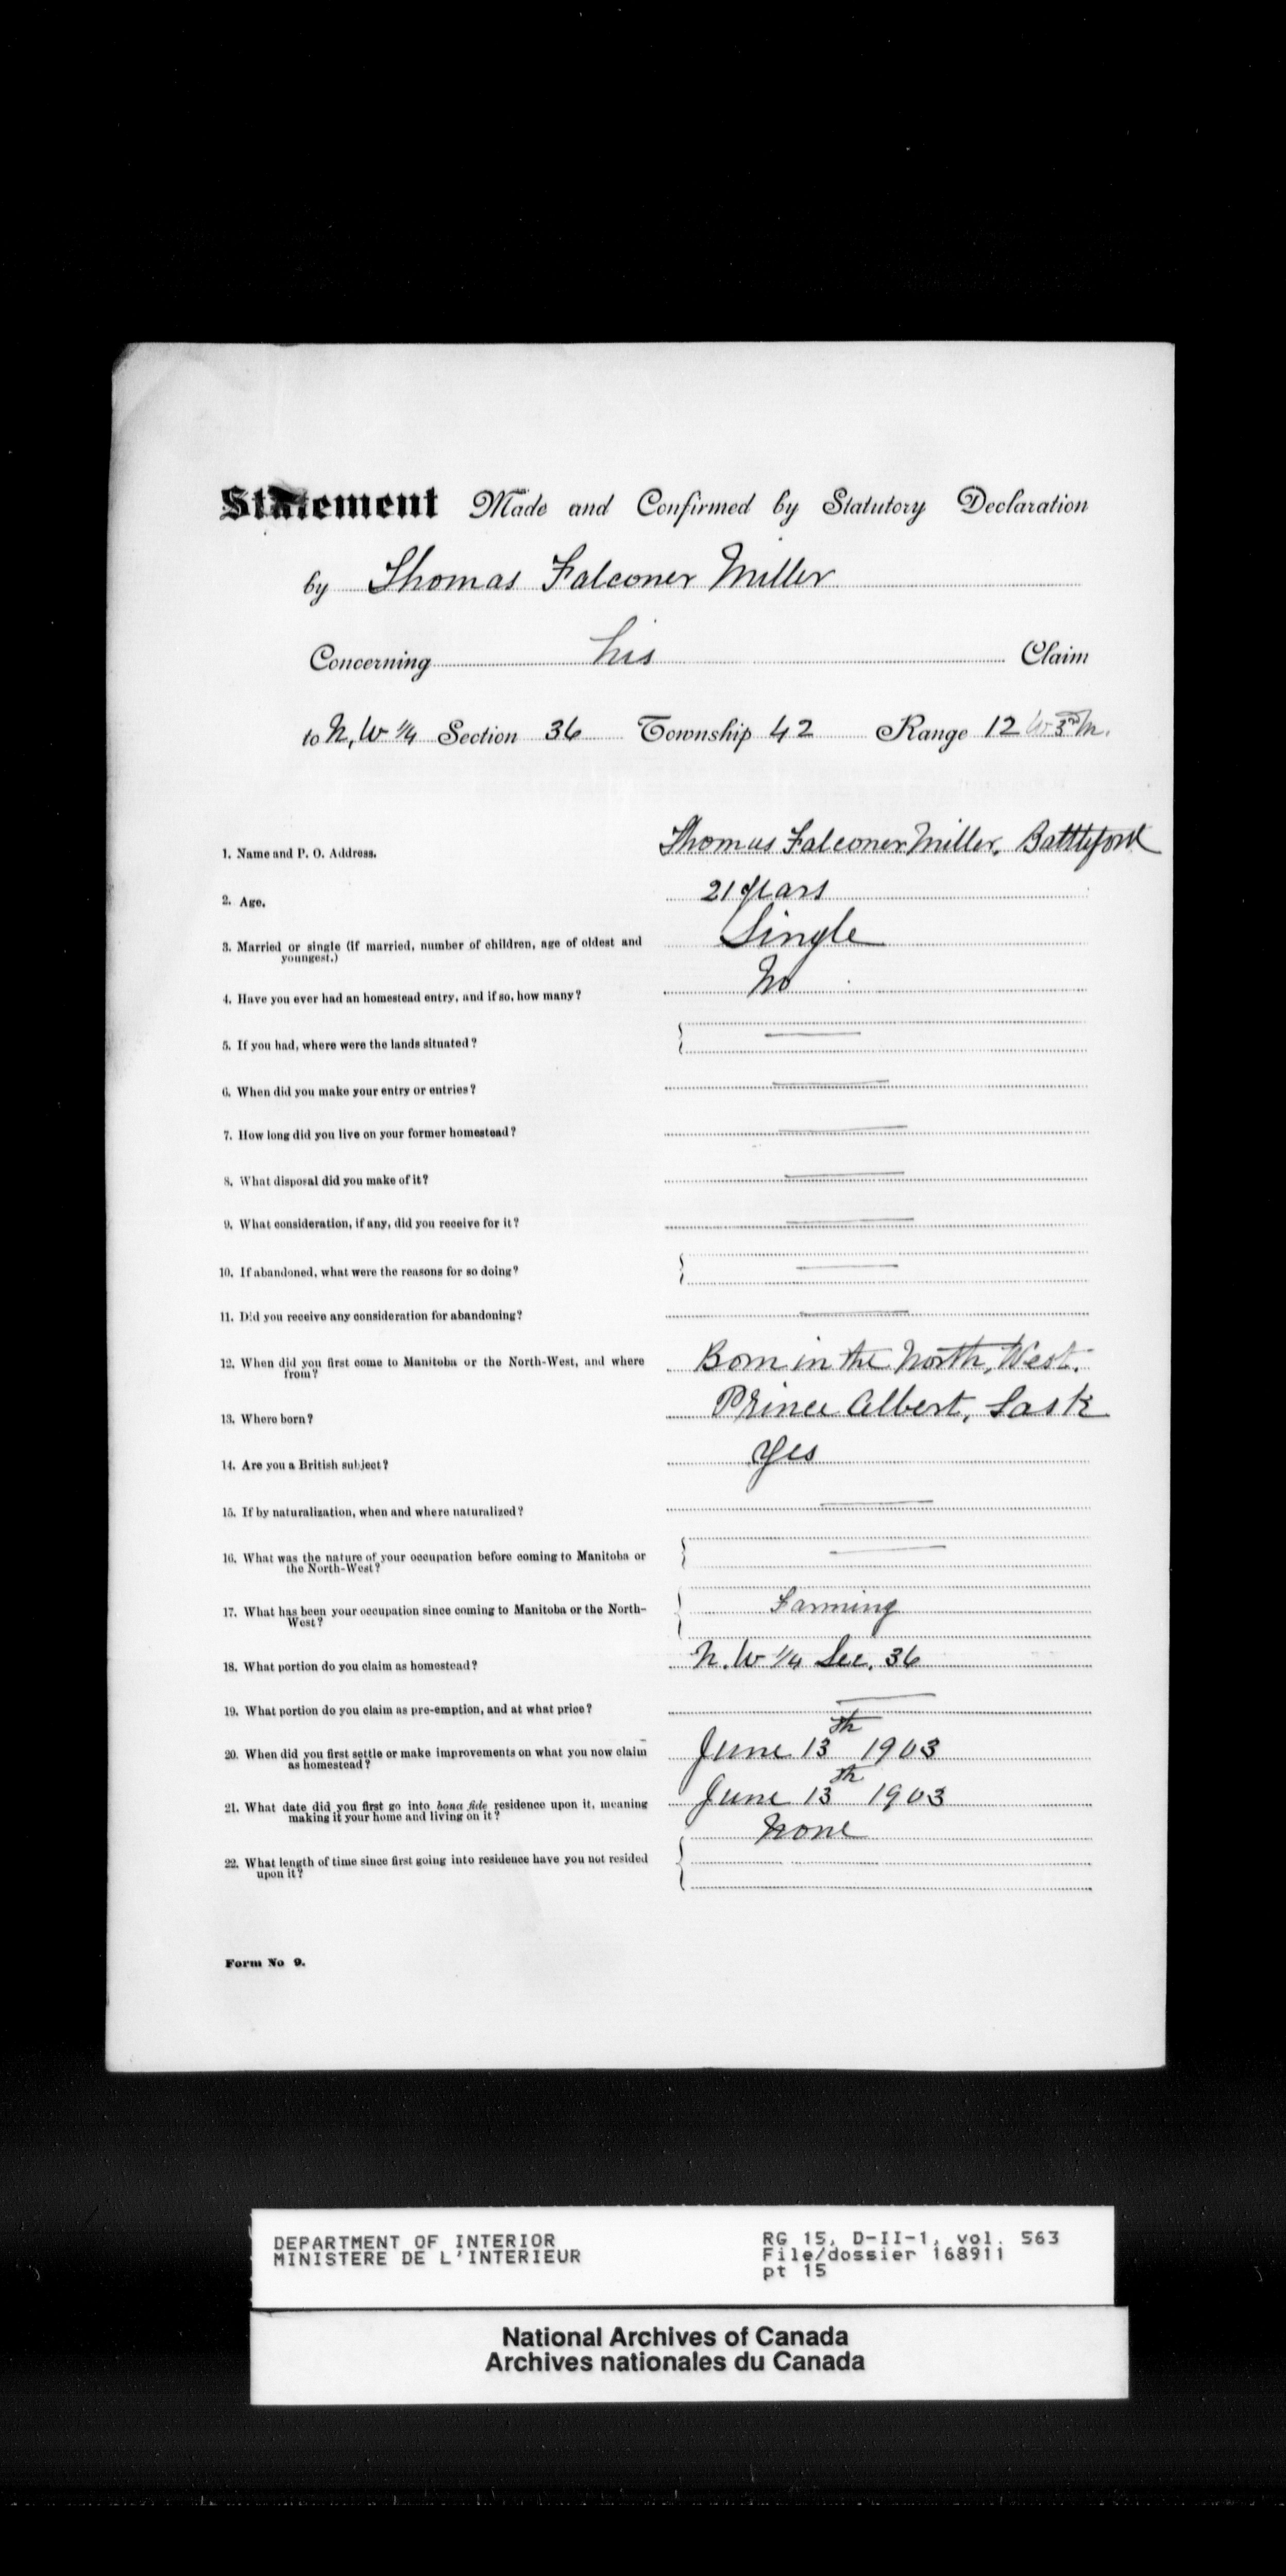 Statement Made and Confirmed by Statutory Declaration
by Thomas Falconer Miller
Concerning his Claim
to N, W 1/4 Section 36 Township 42 Range 12 W 3rd M.
1. Name and P. O. Address. Thomas Falconer Miller, Battleford
2. Age. 21 years
3. Married or single (if married, number of children, age of oldest and Single
youngest.)
4. Have you ever had an homestead entry, and if so, how many? No
5. If you had, where were the lands situated? —
6. When did you make your entry or entries? —
7. How long did you live on your former homestead? —
8. What disposal did you make of it? —
9. What consideration, if any, did you receive for it? —
10. If abandoned, what were the reasons for so doing? —
11. Did you receive any consideration for abandoning? —
12. When did you first come to Manitoba or the North-West, and where Born in the North, West.
from?
13. Where born? Prince Albert, Sask
14. Are you a British subject? Yes
15. If by naturalization, when and where naturalized? —
16. What was the nature of your occupation before coming to Manitoba or —
the North-West?
17. What has been your occupation since coming to Manitoba or the North- Farming
West?
18. What portion do you claim as homestead? N. W 1/4 Sec. 36
19. What portion do you claim as pre-emption, and at what price? —
20. When did you first settle or make improvements on what you now claim June 13th 1903
as homestead?
21. What date did you first go into bona fide residence upon it, meaning June 13th 1903
making it your home and living on it?
22. What length of time since first going into residence have you not resided None
upon it?
Form No 9.
DEPARTMENT OF INTERIOR RG 15, D-II-1, vol. 563
MINISTERE DE L'INTERIEUR File/dossier 168911
pt 15
National Archives of Canada
Archives nationales du Canada